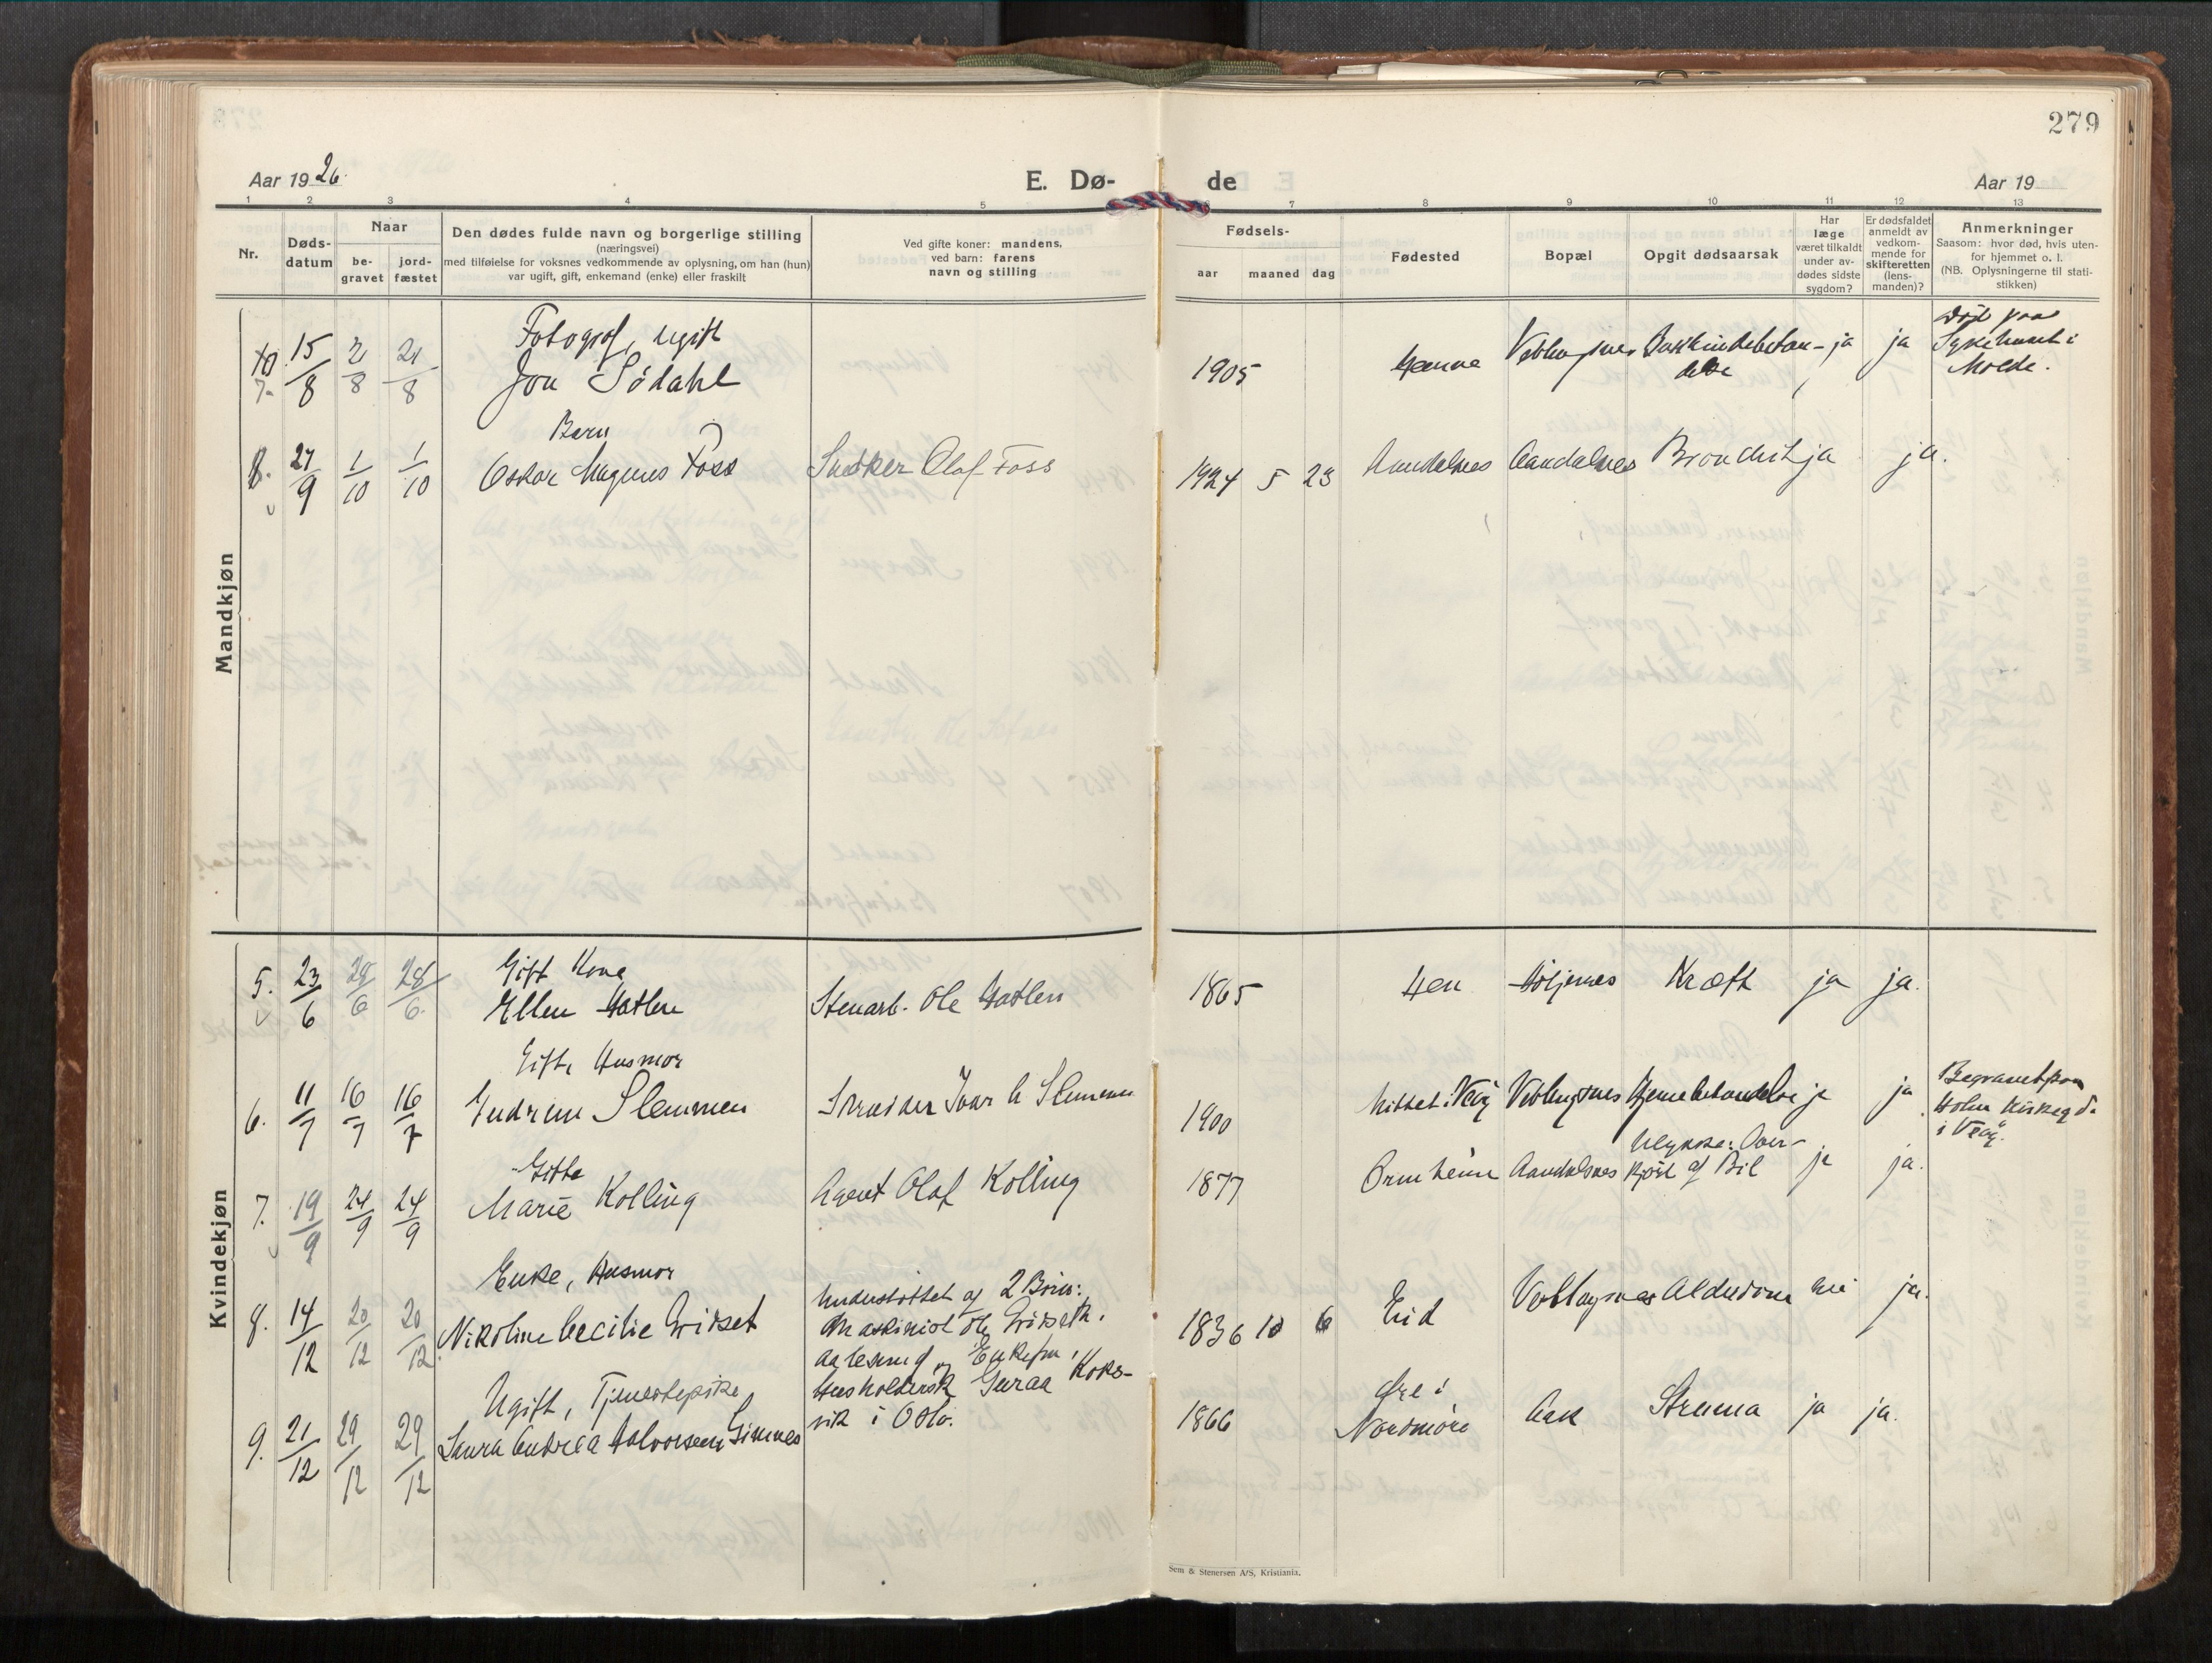 279
Aar 1926.
E. Dø-
de
Aar 19
1 2 3 4 5 6 7 8 9 10 11 12 13
Nr.
Døds-
datum
Naar
be-
gravet
jord-
fæstet
Den dødes fulde navn og borgerlige stilling
(næringsvei)
med tilføielse for voksnes vedkommende av oplysning, om han (hun)
var ugift, gift, enkemand (enke) eller fraskilt
Ved gifte koner: mandens,
ved barn: farens
navn og stilling
Fødsels-
aar maaned dag
Fødested
Bopæl
Opgit dødsaarsak
Har
læge
været tilkaldt
under av-
dødes sidste
sygdom?
Er dødsfaldet
anmeldt av
vedkom-
mende for
skifteretten
(lens-
manden)?
Anmerkninger
Saasom: hvor død, hvis uten-
for hjemmet o. l.
(NB. Oplysningerne til stati-
stikken)
Mandkjøn
Fotograf, ugift
7. 15/8 21/8 Jon Sødahl 1905 ja ja
Død paa
Sykehuset i
Molde.
Barn
8. 27/9 1/10 1/10 Oskar Magnus Foss Snedker Olaf Foss 1924 5 23 Aandalsnes Aandalsnes ja ja.
Kvindekjøn
Gift Kone
5. 23/6 28/6 28/6 Ellen Hatlen Stenarb. Ole Hatlen 1865 Hen Kræft ja ja.
Gift, Husmor
6. 11/7 16/7 16/7 Gudrun Slemmen Skrædder Ivar Slemmen 1900 Veblungsnes Hjernebetændelse ja ja
Begravet paa
Holm Kirkegd.
i Veøy.
Gift
7. 19/9 24/9 24/9 Marie Kolling Agent Olaf Kolling 1877 Ormheim Aandalsnes
Ulykke: Over-
kjørt af Bil ja ja.
Enke, Husmor
8. 14/12 20/12 20/12 Nikoline Cecilie Gridset
Understøttet af 2 Børn:
Maskinist Ole Gridseth,
Aalesund og Enkefru,
Husholdersk Guraa Koks-
vik i Oslo.
1836 10 6 Eid Veblungsnes Alderdom nei ja.
Ugift, Tjenestepike
9. 21/12 29/12 29/12 Laura Andrea Halvorsen Gimnes 1866
Øre i
Nordmøre Aak Struma ja ja.
Sem & Stenersen A/S, Kristiania.